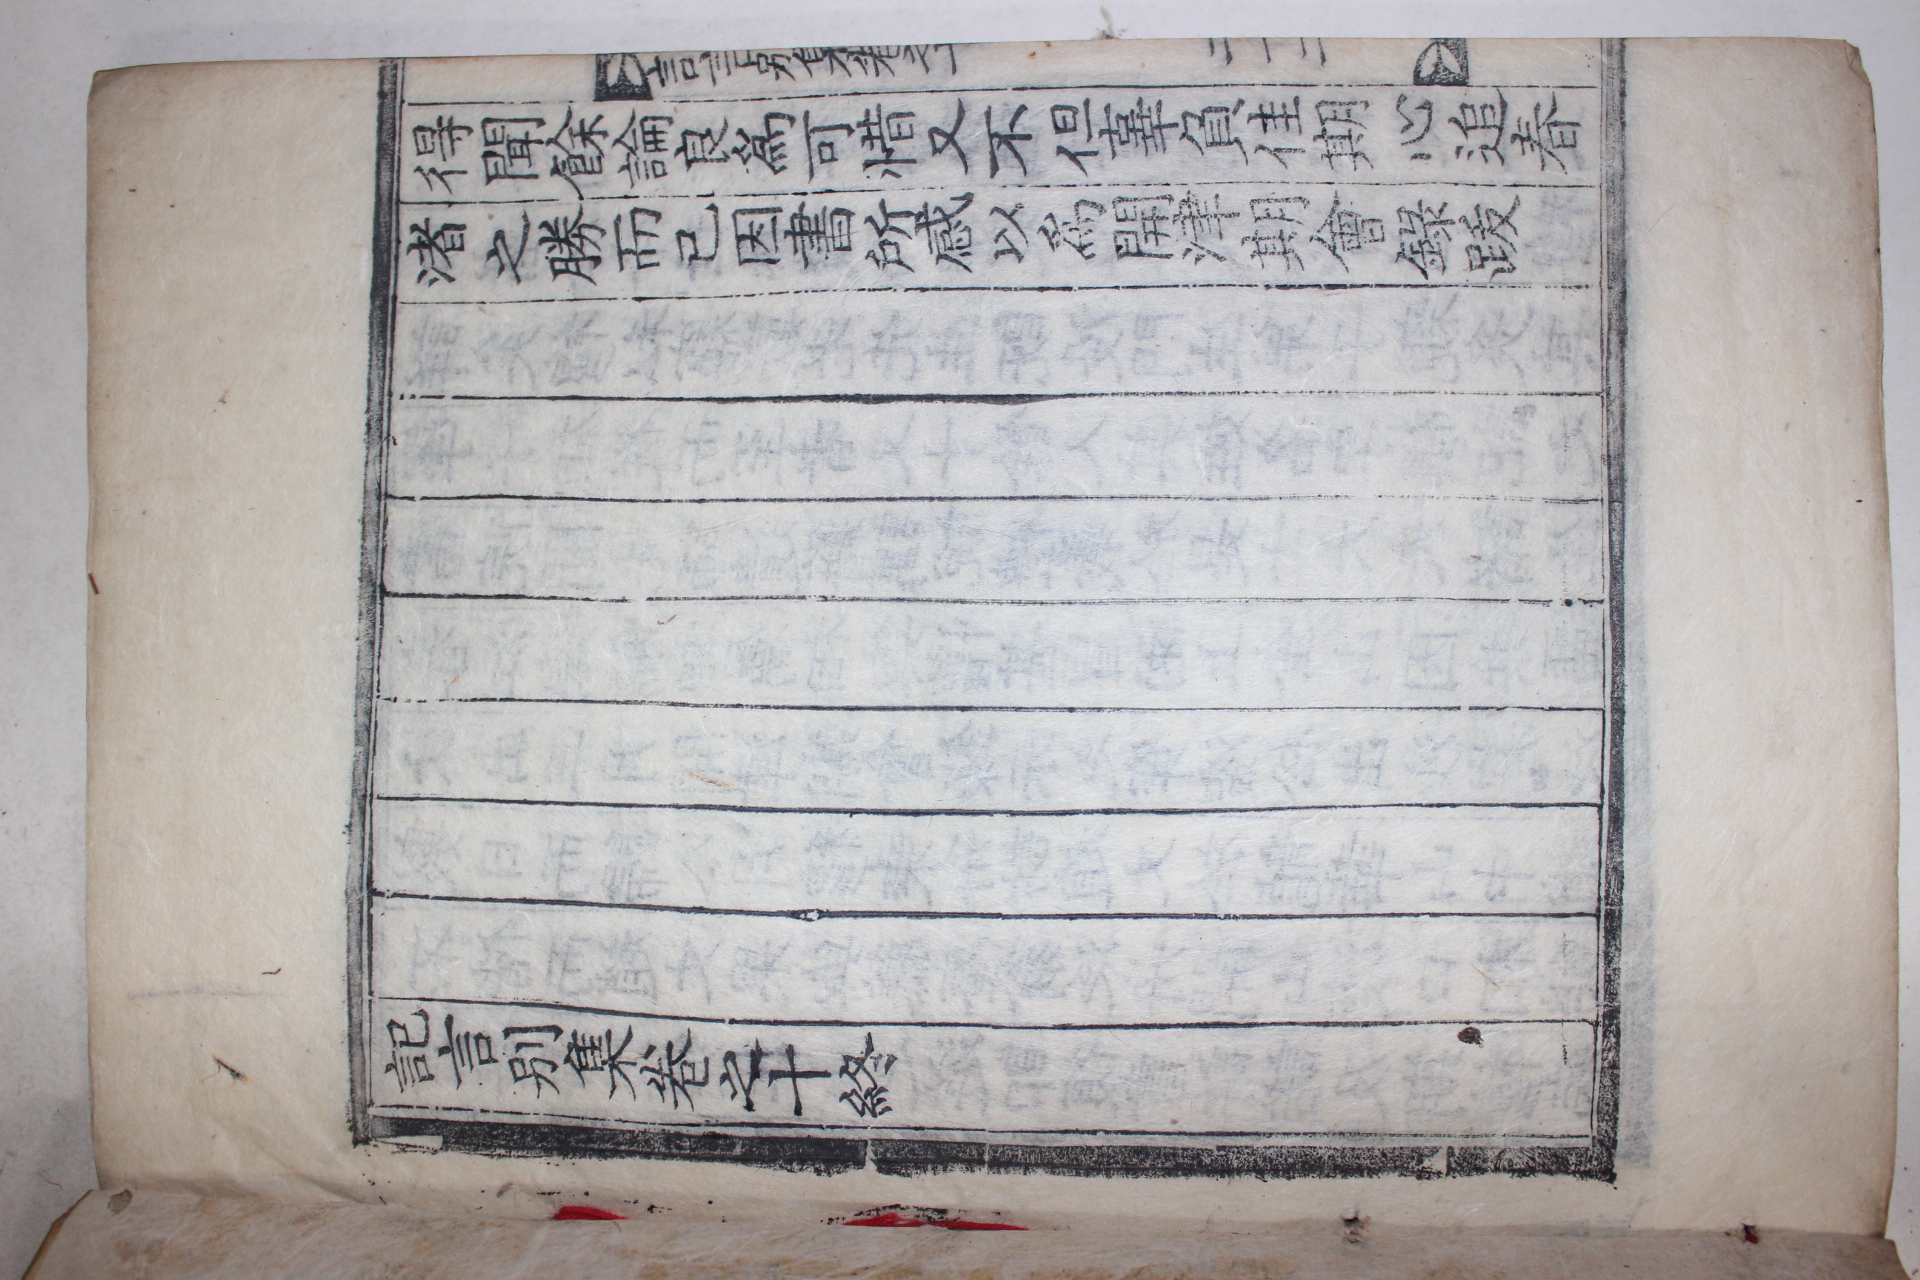 言別集卷
得聞餘論良爲可惜又不但辜負佳期心追春
渚之勝而已因書所感以爲開津期會錄跋
記言別集卷之十終